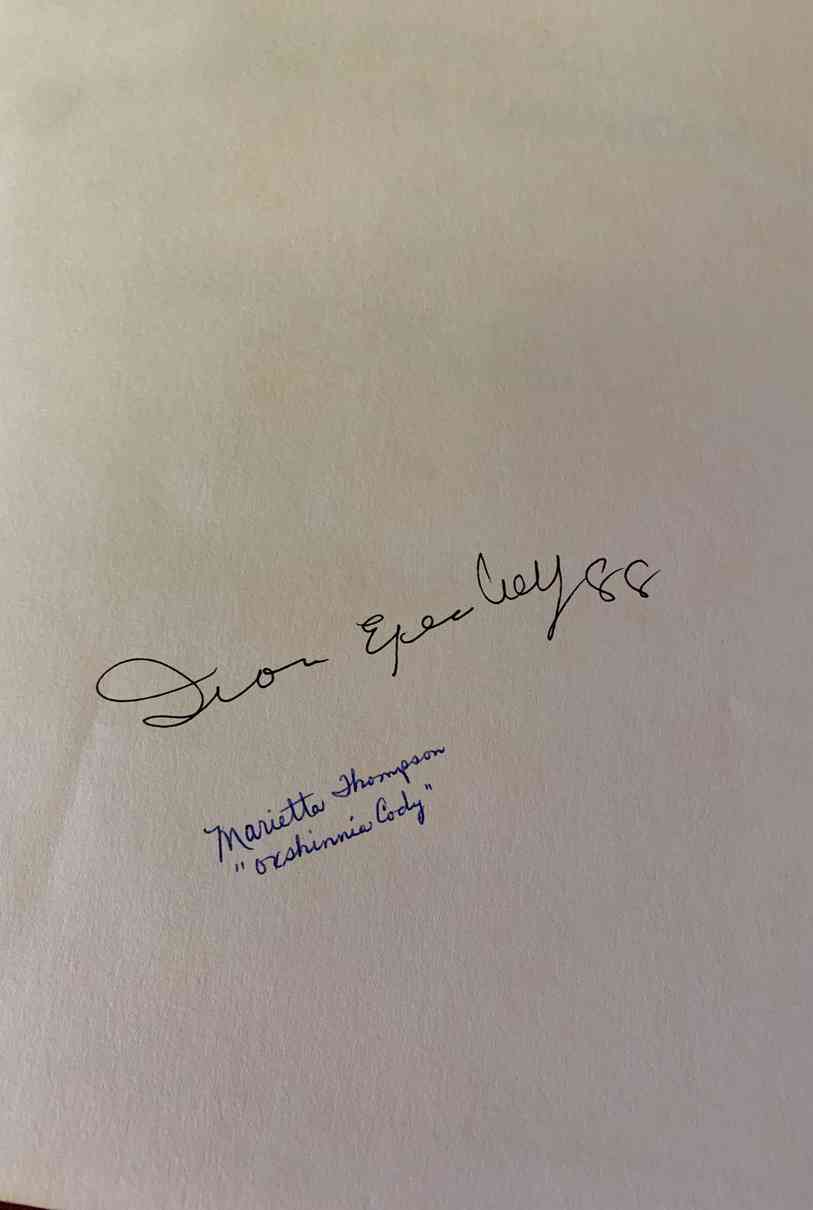 Iron Eyes Cody 88
Marietta Thompson
"Oxshinnia Cody"